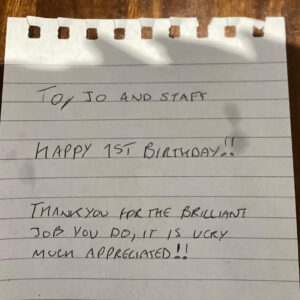 TO, JO AND STAFF
HAPPY 1ST BIRTHDAY!!
THANKYOU FOR THE BRILLIANT
JOB YOU DO, IT IS VERY
MUCH APPRECIATED!!